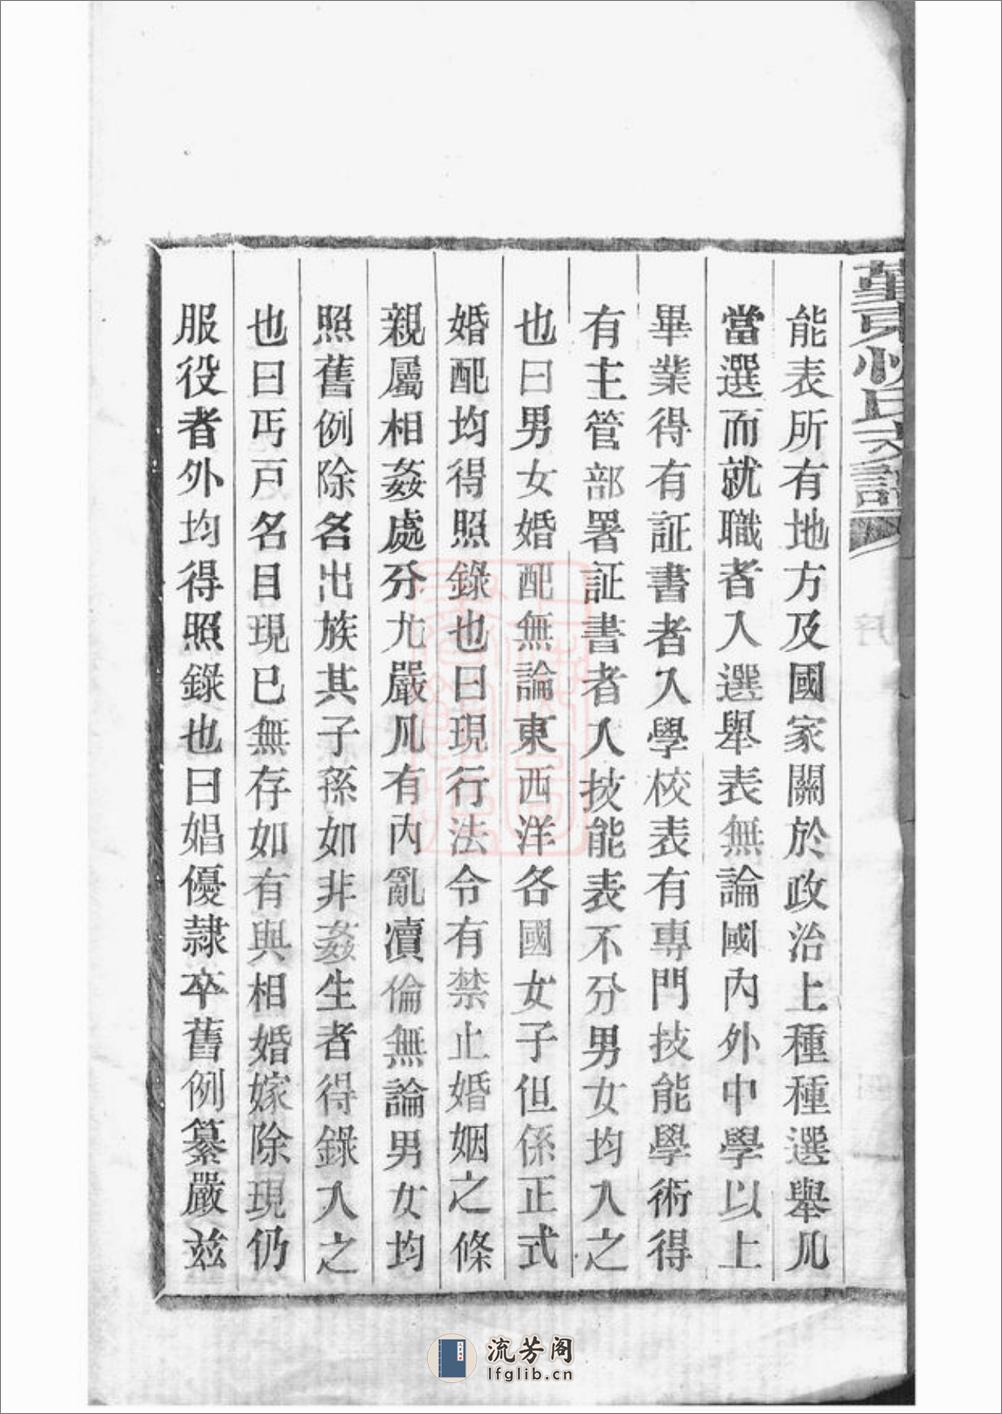 能表所有地方及國家關於政治上種種選舉凡
當選而就職者入選舉表無論國內外中學以上
畢業得有証書者入學校表有專門技能學術得
有主管部署証書者入技能表不分男女均入之
也曰男女婚配無論東西洋各國女子但係正式
婚配均得照錄也曰現行法令有禁止婚姻之條
親屬相姦處分尤嚴凡有內亂瀆倫無論男女均
照舊例除名出族其子孫如非姦生者得錄入之
也曰丐戸名目現已無存如有與相婚嫁除現仍
服役者外均得照錄也曰娼優隷卒舊例纂嚴茲
流芳阁
lfglib.cn